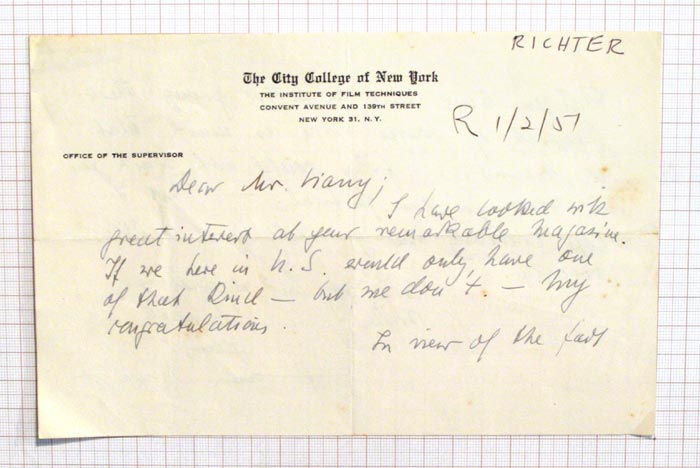 RICHTER
The City College of New York
THE INSTITUTE OF FILM TECHNIQUES
CONVENT AVENUE AND 139TH STREET
NEW YORK 31, N. Y.
R 1/2/51
OFFICE OF THE SUPERVISOR
Dear Mr.
I have looked with
great interest at your remarkable magazine.
If we here in U.S. would only have one
of that kind – but we don't – My
congratulations.
In view of the fact